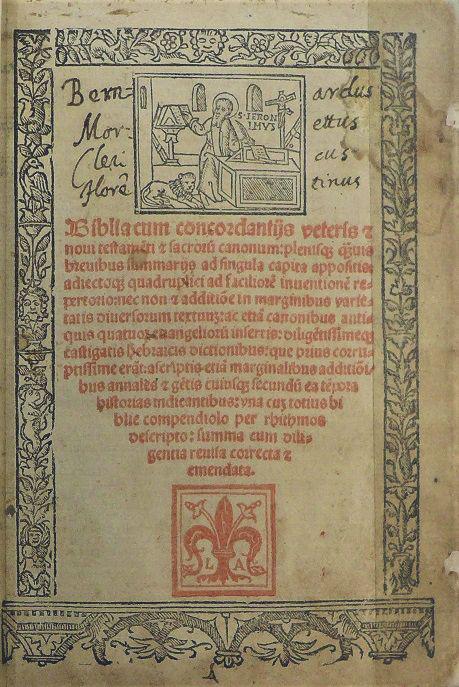 Bern= ardus
Mor- ettus
Cleri cus
florē tinus
S·IERON
IMVS
Biblia cum concordantijs veteris ⁊
noui testamēti ⁊ sacrorū canonum: plenisq̃
breuibus summarijs ad singula capita appositis:
adiectoq̃ quadruplici ad faciliorē inuentionē re-
pertorio: nec non ⁊ additiōe in marginibus varie-
tatis diuersorum textuum: ac etiā canonibus anti-
quis quatuor euangeliorū insertis: diligētissimeq̃
castigatis hebraicis dictionibus: que prius corru-
ptissime erāt: ascriptis etiā marginalibus additiōi-
bus annales ⁊ gētis cuiusq̃ secundū ea tēpora
historias indicantibus: vna cuȝ totius bi
blie compendiolo per rhithmos
descripto: summa cum dili-
gentia reuisa correcta ⁊
emendata.
L A
A